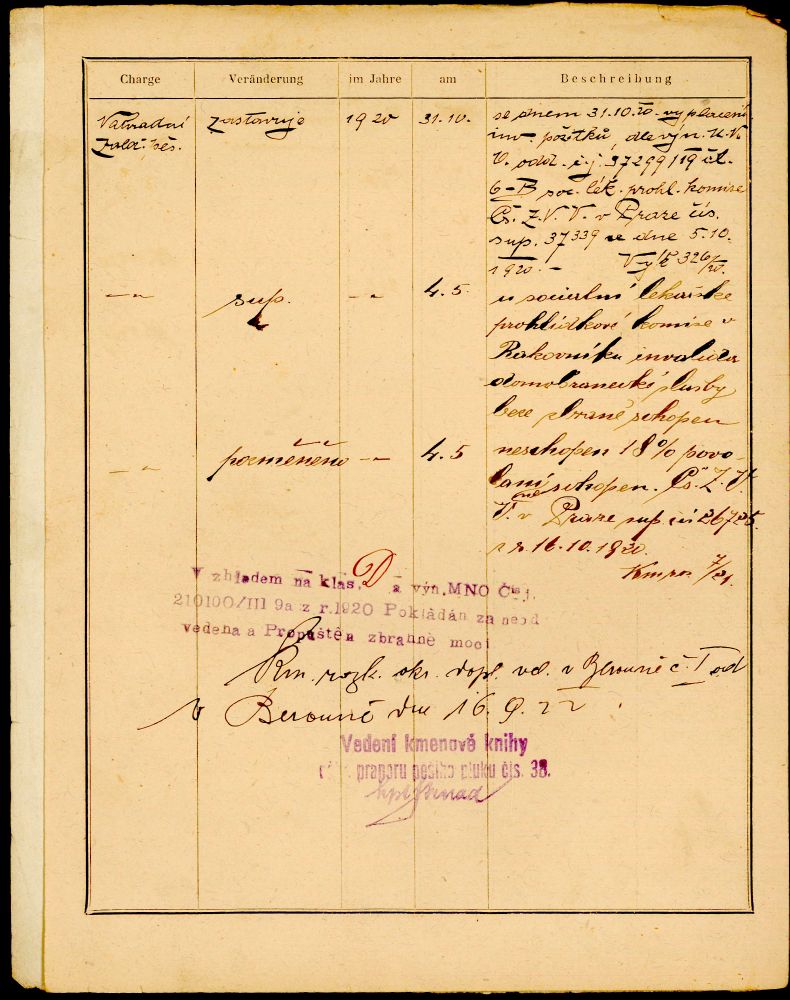 Charge Veränderung im Jahre am Beschreibung
Náhradní zastavuje 1920 31.10. se dnem 31.10.20 vyplacení
inv. požitků, dle výn. H.V.
V. odd. 37299/19 čl.
6-B soc. lék. prohl. komise
Čs. Z.V.V. v Praze čís.
sup. 37339 ze dne 5.10.
1920.
-"- sup. -"- 4.5. u sociální lékařské
prohlídkové komise v
Rakovníku invalida
domobranecké služby
beze zbraně schopen
-"- poměněno -"- 4.5 neschopen 18% povo-
lání neschopen. Čs. Z.V.
V. v Praze sup. čís 26725
z r. 16.10.1920.
7/21.
Vzhledem na klas. D a výn. MNO Čís.
210100/III 9a z r.1920 Pokládán za neod
vedena a Propuštěn z branné moci
Km. rozk. okr. dopl. vel. v Berouně č. I od
V Berouně dne 16.9.22.
Vedení kmenové knihy
praporu pěšího pluku čís. 38.